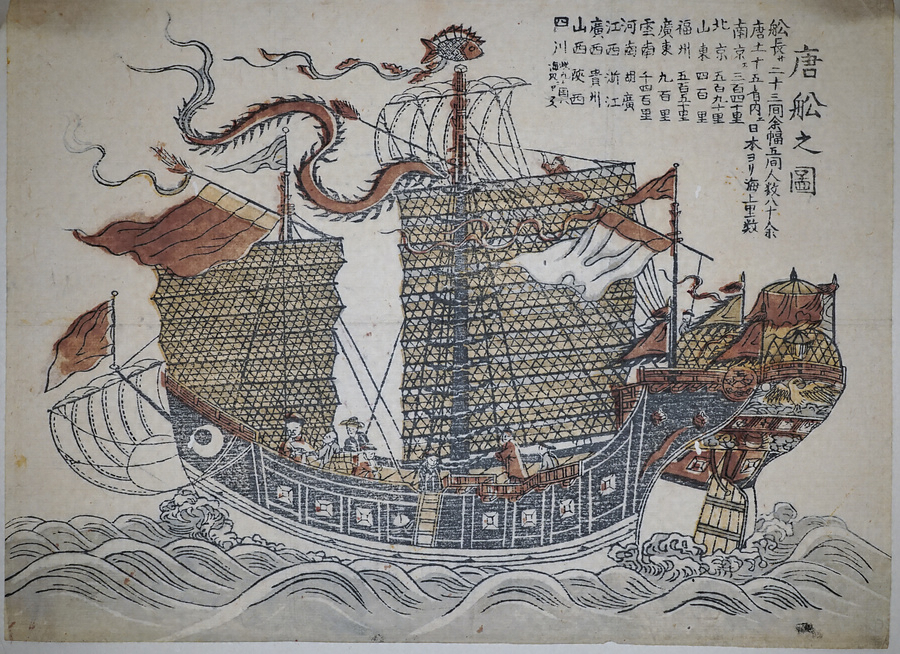 唐舩之圖
舩長サ二十三間余幅五間人数八十余
唐土十五省内ヱ日本ヨリ海上里数
南京ヱ三百四十里
北京五百九十里
山東四百里
福州五百五十里
廣東九百里
雲南千四百里
河南 湖廣
江西 浙江
廣西 貴州
山西 陝西
四川